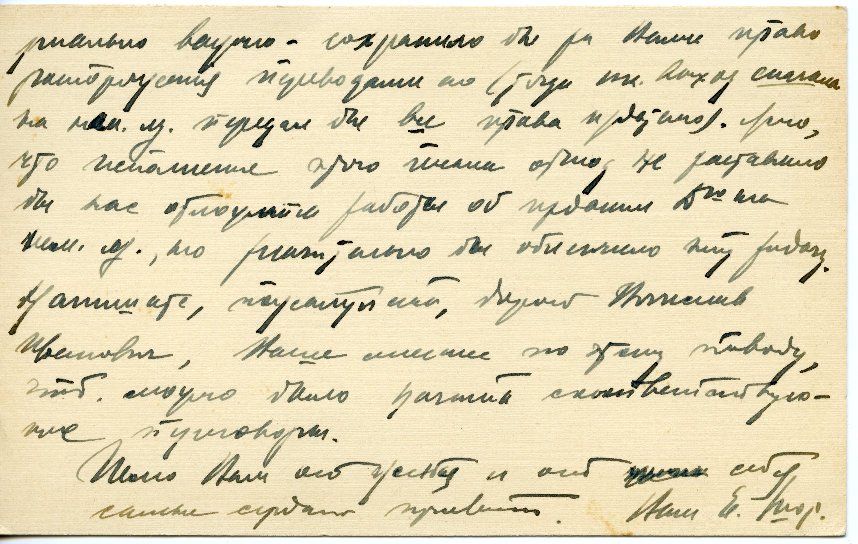 риально важно – сохранило бы за Вами право
распоряжения переводами но (тогда как Вы
на нем. яз. передал бы все права издано). Ясно,
что исполнение этого плана отнюд не заставило
бы нас отложить работы об издании Dm на
нем. яз., но значительно бы облегчило эту задачу.
Напишите, пожалуйста, дорогой Вячеслав
Иванович, Ваше мнение по этому поводу,
чтоб. можно было начать соответствую-
щие переговоры.
Шлю Вам от жены и от себя
самые сердечн приветы. Ваш Е. Шор.